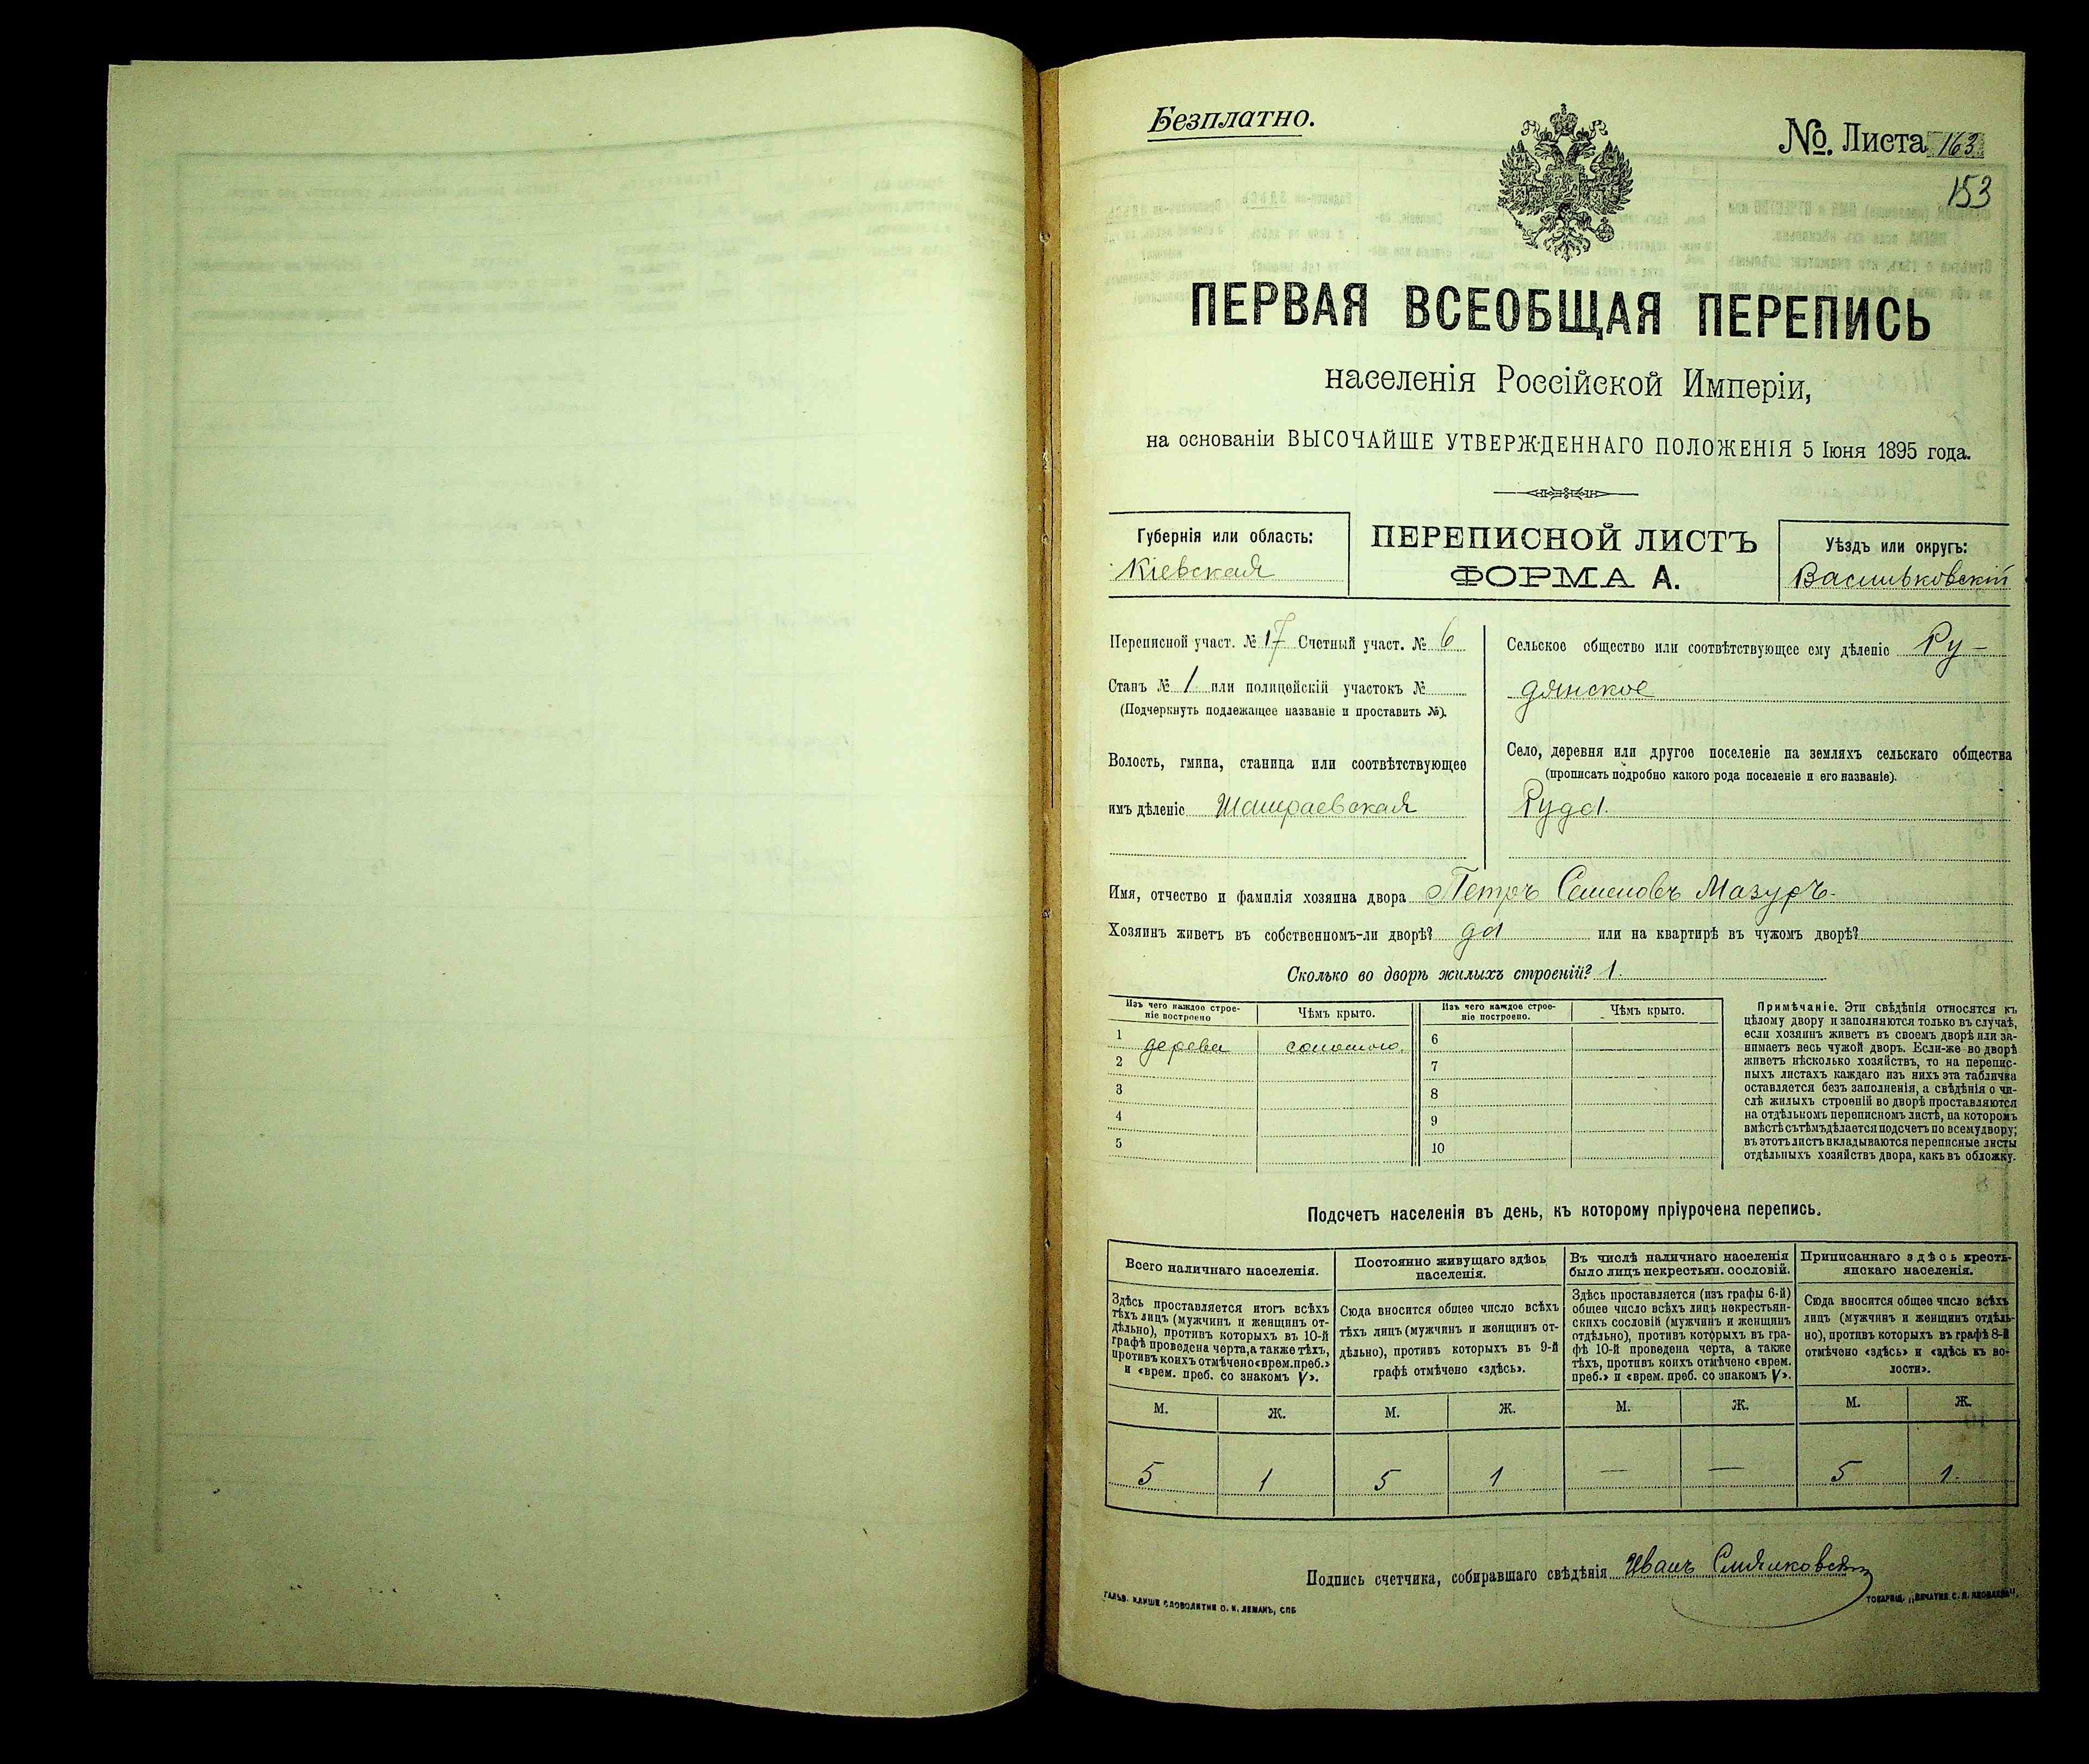 Безплатно.
№. Листа 163
153
ПЕРВАЯ ВСЕОБЩАЯ ПЕРЕПИСЬ
населенія Россійской Имперіи,
на основаніи ВЫСОЧАЙШЕ УТВЕРЖДЕННАГО ПОЛОЖЕНІЯ 5 Іюня 1895 года.
Губернія или область:
Кіевская
ПЕРЕПИСНОЙ ЛИСТЪ
ФОРМА А.
Уѣздъ или округъ:
Васильковскій
Переписной участ. № 17 Счетный участ. № 6
Станъ № 1 или полицейскій участокъ №
(Подчеркнуть подлежащее названіе и проставить №).
Волость, гмина, станица или соотвѣтствующее
имъ дѣленіе Шамраевская
Сельское общество или соотвѣтствующее ему дѣленіе Ру-
дянское
Село, деревня или другое поселеніе на земляхъ сельскаго общества
(прописать подробно какого рода поселеніе и его названіе).
Руда.
Имя, отчество и фамилія хозяина двора Петръ Семеновъ Мазуръ.
Хозяинъ живетъ въ собственномъ-ли дворѣ? да или на квартирѣ въ чужомъ дворѣ?
Сколько во дворѣ жилыхъ строеній? 1.
Изъ чего каждое строе-
ніе построено
Чѣмъ крыто.
Изъ чего каждое строе-
ніе построено.
Чѣмъ крыто.
1 дерева соломою. 6
2 7
3 8
4 9
5 10
Примѣчаніе. Эти свѣдѣнія относятся къ
цѣлому двору и заполняются только въ случаѣ,
если хозяинъ живетъ въ своемъ дворѣ или за-
нимаетъ весь чужой дворъ. Если-же во дворѣ
живетъ нѣсколько хозяйствъ, то на перепис-
ныхъ листахъ каждаго изъ нихъ эта табличка
оставляется безъ заполненія, а свѣдѣнія о чи-
слѣ жилыхъ строеній во дворѣ проставляются
на отдѣльномъ переписномъ листѣ, на которомъ
вмѣстѣ съ тѣмъ дѣлается подсчетъ по всему двору;
въ этотъ листъ вкладываются переписные листы
отдѣльныхъ хозяйствъ двора, какъ въ обложку.
Подсчетъ населенія въ день, къ которому пріурочена перепись.
Всего наличнаго населенія.
Здѣсь проставляется итогъ всѣхъ
тѣхъ лицъ (мужчинъ и женщинъ от-
дѣльно), противъ которыхъ въ 10-й
графѣ проведена черта, а также тѣхъ,
противъ коихъ отмѣчено «врем. преб.»
и «врем. преб. со знакомъ V».
Постоянно живущаго здѣсь
населенія.
Сюда вносится общее число всѣхъ
тѣхъ лицъ (мужчинъ и женщинъ от-
дѣльно), противъ которыхъ въ 9-й
графѣ отмѣчено «здѣсь».
Въ числѣ наличнаго населенія
было лицъ некрестьян. сословій.
Здѣсь проставляется (изъ графы 6-й)
общее число всѣхъ лицъ некрестьян-
скихъ сословій (мужчинъ и женщинъ
отдѣльно), противъ которыхъ въ гра-
фѣ 10-й проведена черта, а также
тѣхъ, противъ коихъ отмѣчено «врем.
преб.» и «врем. преб. со знакомъ V».
Приписаннаго здѣсь кресть-
янскаго населенія.
Сюда вносится общее число всѣхъ
лицъ (мужчинъ и женщинъ отдѣль-
но), противъ которыхъ въ графѣ 8-й
отмѣчено «здѣсь» и «здѣсь въ во-
лости».
М. Ж. М. Ж. М. Ж. М. Ж.
5 1 5 1 — — 5 1.
Подпись счетчика, собиравшаго свѣдѣнія Иванъ
ГАЛЬВ. КЛИШЕ СЛОВОЛИТНИ О. И. ЛЕМАНЪ, СПБ
ТОВАРИЩ. „ПЕЧАТНЯ С. П. ЯКОВЛЕВА".